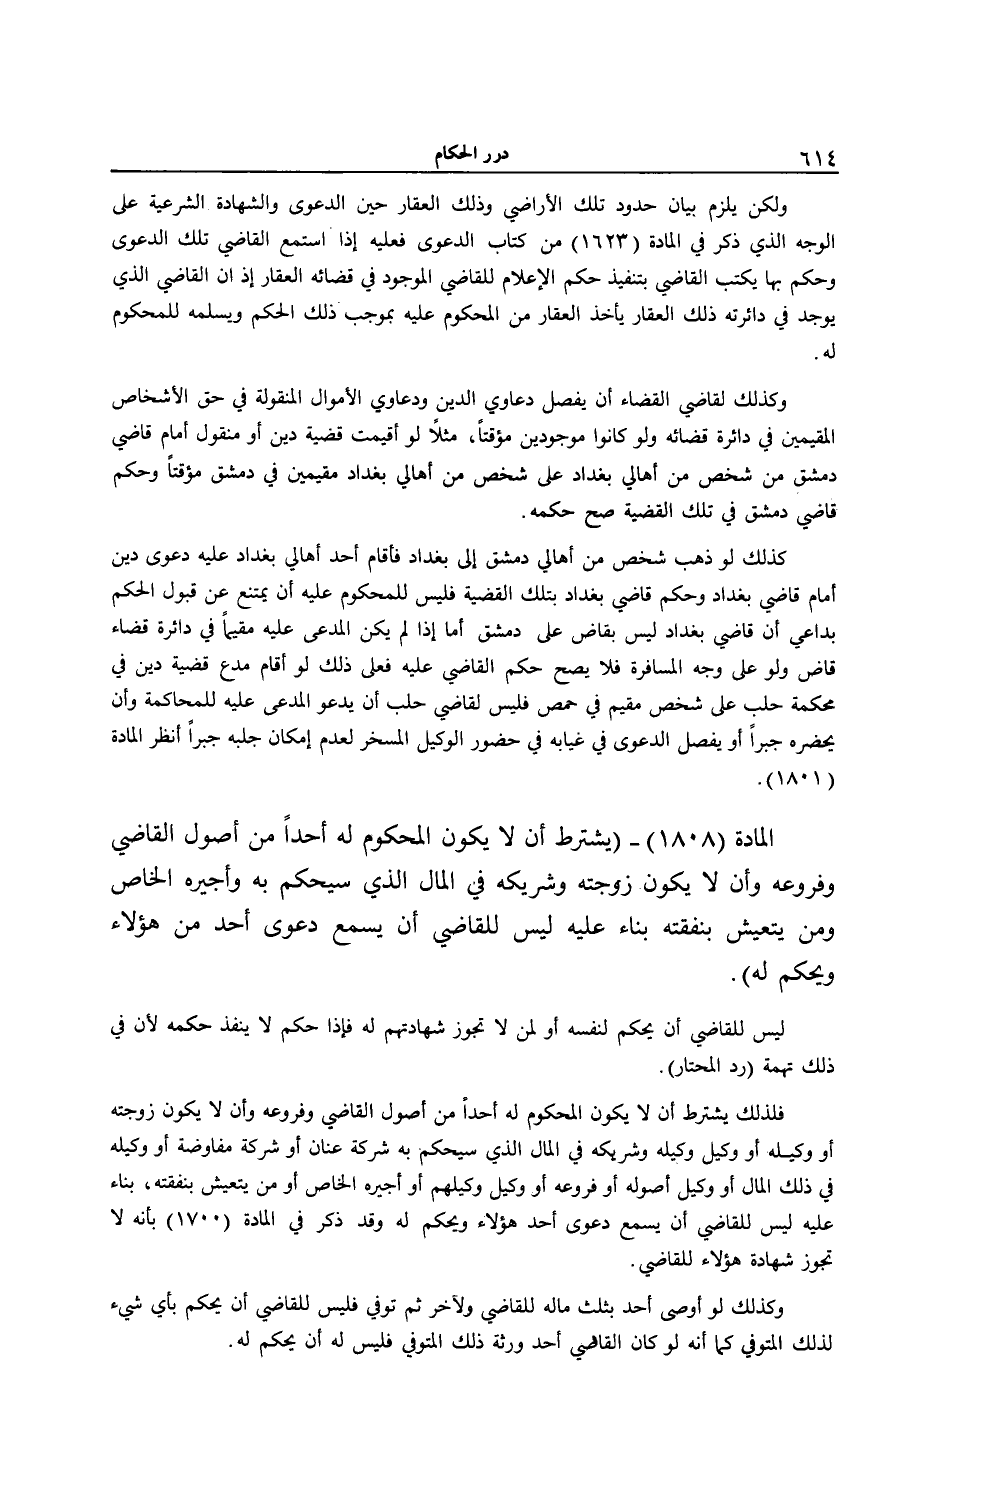 ٦١٤
درر الحكام
ولكن يلزم بيان حدود تلك الأراضي وذلك العقار حين الدعوى والشهادة الشرعية على
الوجه الذي ذكر في المادة (١٦٢٣) من كتاب الدعوى فعليه إذا استمع القاضي تلك الدعوى
وحكم بها يكتب القاضي بتنفيذ حكم الإعلام للقاضي الموجود في قضائه العقار إذ ان القاضي الذي
يوجد في دائرته ذلك العقار يأخذ العقار من المحكوم عليه بموجب ذلك الحكم ويسلمه للمحكوم
له.
وكذلك لقاضي القضاء أن يفصل دعاوي الدين ودعاوي الأموال المنقولة في حق الأشخاص
المقيمين في دائرة قضائه ولو كانوا موجودين مؤقتاً، مثلًا لو أقيمت قضية دين أو منقول أمام قاضي
دمشق من شخص من أهالي بغداد على شخص من أهالي بغداد مقيمين في دمشق مؤقتاً وحكم
قاضي دمشق في تلك القضية صح حكمه.
كذلك لو ذهب شخص من أهالي دمشق إلى بغداد فأقام أحد أهالي بغداد عليه دعوى دين
أمام قاضي بغداد وحكم قاضي بغداد بتلك القضية فليس للمحكوم عليه أن يمتنع عن قبول الحكم
بداعي أن قاضي بغداد ليس بقاض على دمشق أما إذا لم يكن المدعى عليه مقيماً في دائرة قضاء
قاض ولو على وجه المسافرة فلا يصح حكم القاضي عليه فعلى ذلك لو أقام مدع قضية دين في
محكمة حلب على شخص مقيم في حمص فليس لقاضي حلب أن يدعو المدعى عليه للمحاكمة وأن
يحضره جبراً أو يفصل الدعوى في غيابه في حضور الوكيل المسخر لعدم إمكان جلبه جبراً أنظر المادة
(١٨٠١).
المادة (١٨٠٨) ـ (يشترط أن لا يكون المحكوم له أحداً من أصول القاضي
وفروعه وأن لا يكون زوجته وشريكه في المال الذي سيحكم به وأجيره الخاص
ومن يتعيش بنفقته بناء عليه ليس للقاضي أن يسمع دعوى أحد من هؤلاء
ويحكم له).
ليس للقاضي أن يحكم لنفسه أو لمن لا تجوز شهادتهم له فإذا حكم لا ينفذ حكمه لأن في
ذلك تهمة (رد المحتار).
فلذلك يشترط أن لا يكون المحكوم له أحداً من أصول القاضي وفروعه وأن لا يكون زوجته
أو وكيـله أو وكيل وكيله وشريكه في المال الذي سيحكم به شركة عنان أو شركة مفاوضة أو وكيله
في ذلك المال أو وكيل أصوله أو فروعه أو وكيل وكيلهم أو أجيره الخاص أو من يتعيش بنفقته، بناء
عليه ليس للقاضي أن يسمع دعوى أحد هؤلاء ويحكم له وقد ذكر في المادة (١٧٠٠) بأنه لا
تجوز شهادة هؤلاء للقاضي.
وكذلك لو أوصى أحد بثلث ماله للقاضي ولآخر ثم توفي فليس للقاضي أن يحكم بأي شيء
لذلك المتوفي كما أنه لو كان القاضي أحد ورثة ذلك المتوفي فليس له أن يحكم له.